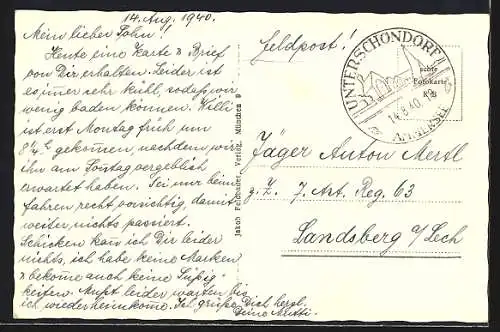 14. Aug. 1940.
Mein lieber Sohn!
Heute eine Karte u Brief
von Dir erhalten. Leider ist
es immer sehr kühl, sodaß wir
wenig baden können. Willi
ist erst Montag früh um
8¼ gekommen, nachdem wir
ihn am Sontag vergeblich
erwartet haben. Sei nur beim
fahren recht vorsichtig, damit
weiter nichts passiert.
Schicken kan ich Dir leider
nichts, ich habe keine Marken
u bekome auch keine Süßig-
keiten. Mußt leider warten bis
ich wiederheimkome. Ich grüße Dich herzl.
Deine Mutti.
Jakob Verlag, München 9
Feldpost!
UNTERSCHONDORF
14.8.40
AMMERSEE
echte
Fotokarte
Jäger Anton Mertl
z. Z. J. Art. Reg. 63
Landsberg a/Lech